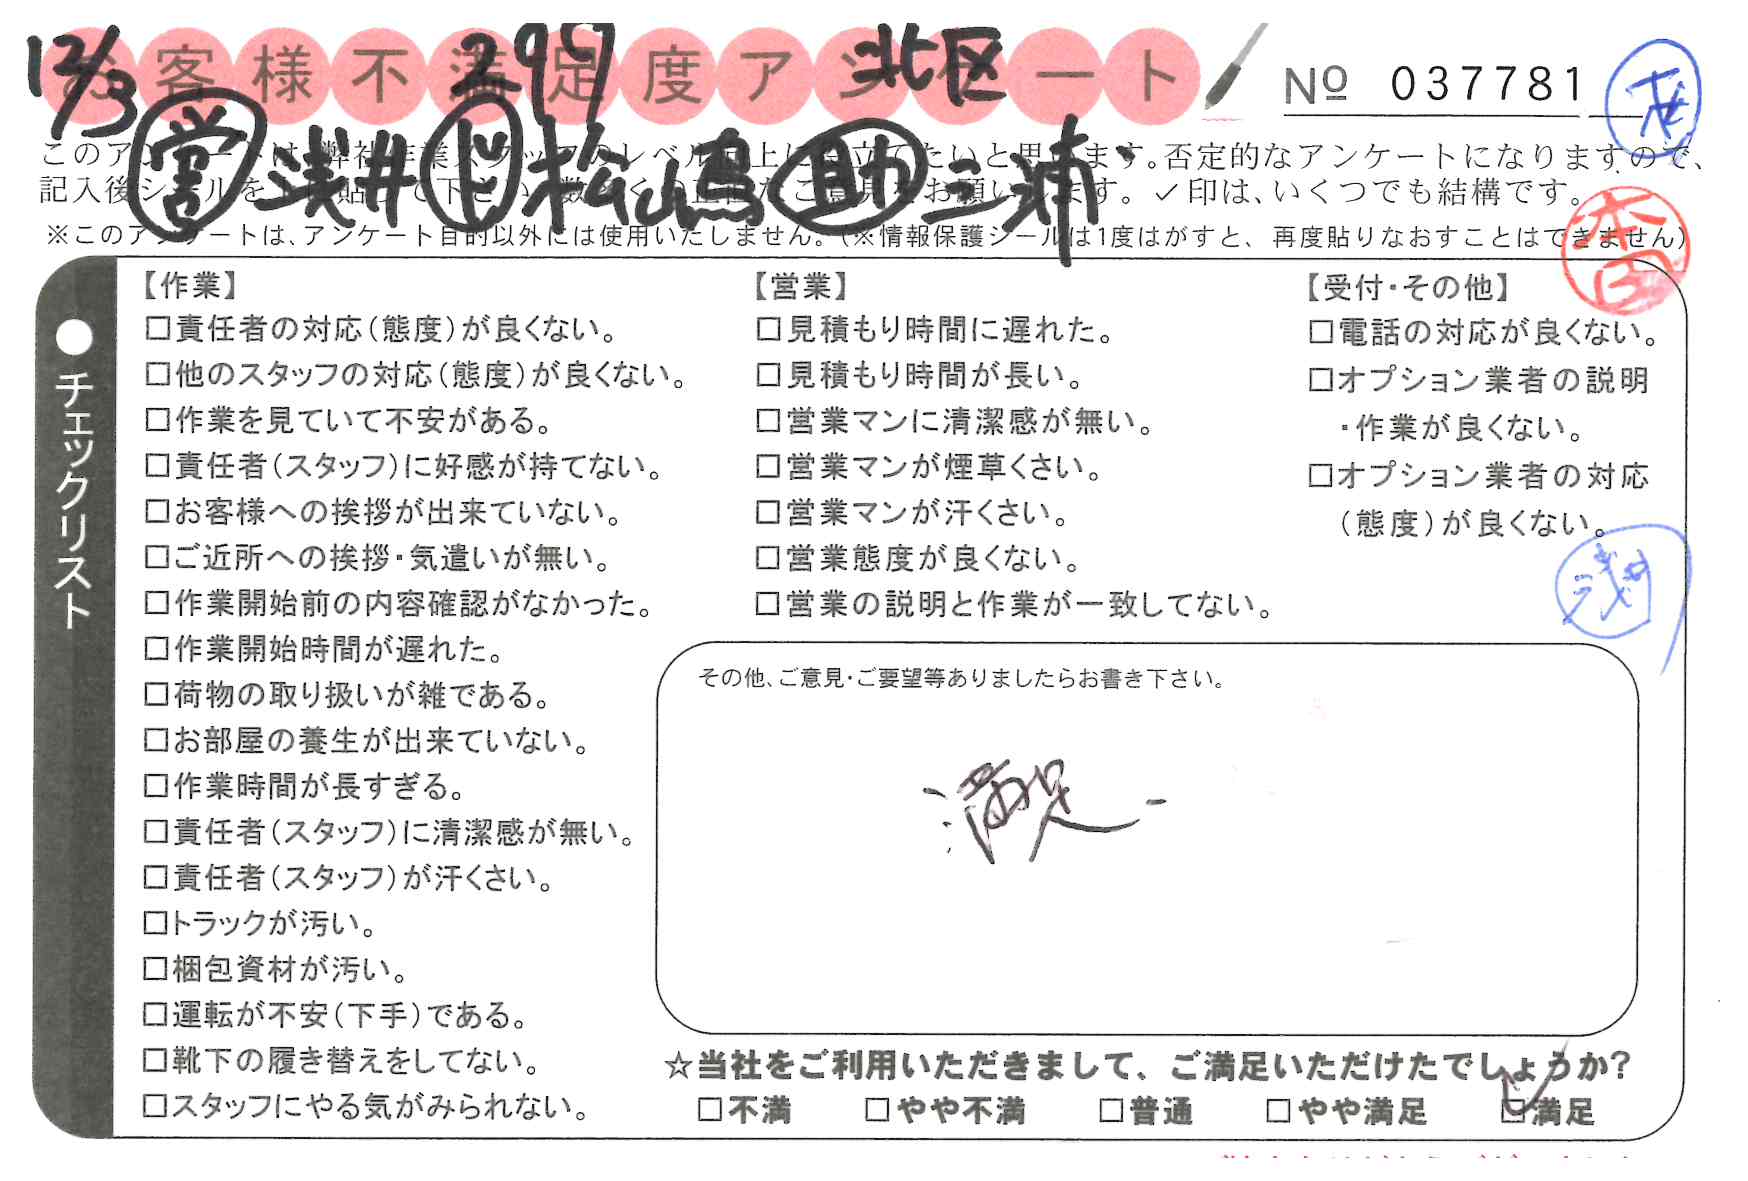 お客様不満足度アンケート
12/3 299 北区
No 037781
営 浅井 ド 松嶋 助 三浦
このアンケートは、弊社作業スタッフのレベル向上に役立てたいと思います。否定的なアンケートになりますので、
記入後シールを上に貼って下さい。数多くの正直なご意見をお願いします。✓印は、いくつでも結構です。
※このアンケートは、アンケート目的以外には使用いたしません。(※情報保護シールは1度はがすと、再度貼りなおすことはできません)
●チェックリスト
【作業】
□責任者の対応(態度)が良くない。
□他のスタッフの対応(態度)が良くない。
□作業を見ていて不安がある。
□責任者(スタッフ)に好感が持てない。
□お客様への挨拶が出来ていない。
□ご近所への挨拶・気遣いが無い。
□作業開始前の内容確認がなかった。
□作業開始時間が遅れた。
□荷物の取り扱いが雑である。
□お部屋の養生が出来ていない。
□作業時間が長すぎる。
□責任者(スタッフ)に清潔感が無い。
□責任者(スタッフ)が汗くさい。
□トラックが汚い。
□梱包資材が汚い。
□運転が不安(下手)である。
□靴下の履き替えをしてない。
□スタッフにやる気がみられない。
【営業】
□見積もり時間に遅れた。
□見積もり時間が長い。
□営業マンに清潔感が無い。
□営業マンが煙草くさい。
□営業マンが汗くさい。
□営業態度が良くない。
□営業の説明と作業が一致してない。
【受付・その他】
□電話の対応が良くない。
□オプション業者の説明
・作業が良くない。
□オプション業者の対応
(態度)が良くない。
浅井
その他、ご意見・ご要望等ありましたらお書き下さい。
満足
☆当社をご利用いただきまして、ご満足いただけたでしょうか?
□不満 □やや不満 □普通 □やや満足 ☑満足